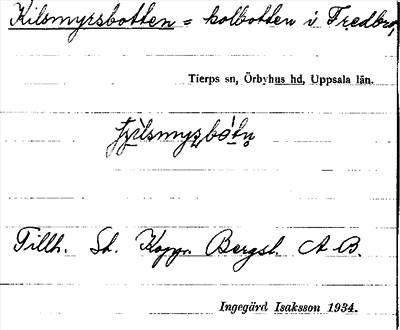 Kilsmyrsbotten = kolbotten i Fredbro,
Tierps sn, Örbyhus hd, Uppsala län.
Tillh. St. Koppr Bergsl. A B.
Ingegärd Isaksson 1934.